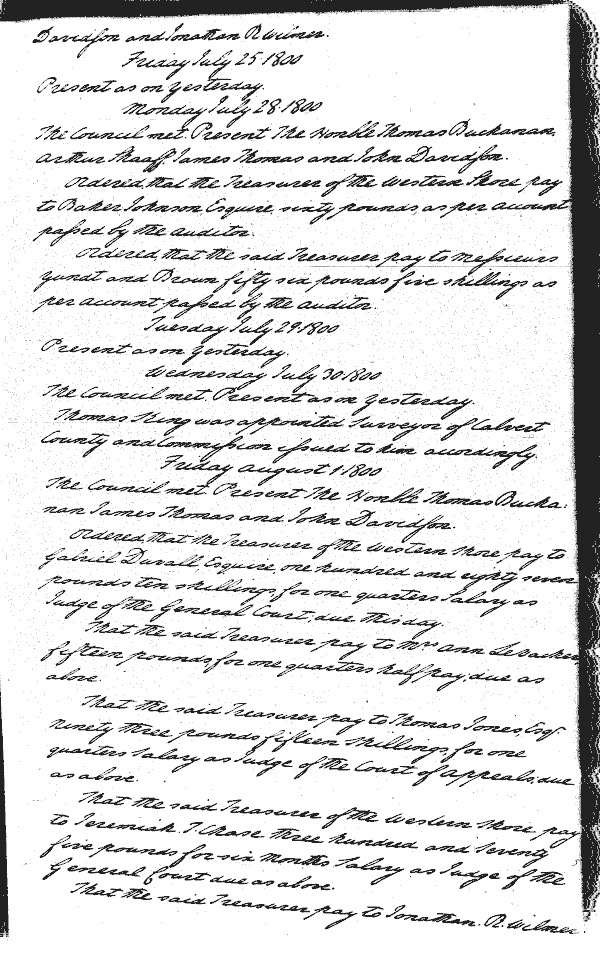 Davidson and Jonathan R. Wilmer.
Friday July 25. 1800
Present as on yesterday.
Monday July 28. 1800
The Council met. Present The Honble Thomas Buchanan,
Arthur Shaaff James Thomas and John Davidson.
Ordered, that the Treasurer of the Western Shore pay
to Baker Johnson Esquire, sixty pounds, as per account
passed by the auditor.
Ordered, that the said Treasurer pay to Messieurs
Yundt and Brown fifty six pounds five shillings as
per account passed by the auditor.
Tuesday July 29. 1800
Present as on yesterday.
Wednesday July 30. 1800
The Council met. Present as on yesterday.
Thomas King was appointed Surveyor of Calvert
County and Commission issued to him accordingly.
Friday August 1. 1800
The Council met. Present The Honble Thomas Bucha:
nan James Thomas and John Davidson.
Ordered, that the Treasurer of the Western Shore pay to
Gabriel Duvall, Esquire, one hundred and eighty seven
pounds ten shillings, for one quarters Salary as
Judge of the General Court, due this day.
That the said Treasurer pay to Mrs Ann
fifteen pounds for one quarters half pay, due as
above.
That the said Treasurer pay to Thomas Jones, Esqr.
ninety three pounds fifteen Shillings, for one
quarters Salary as Judge of the Court of Appeals, due
as above.
That the said Treasurer of the Western Shore, pay
to Jeremiah. T. Chase three hundred and Seventy
five pounds for six months Salary as Judge of the
General Court due as above.
That the said Treasurer pay to Jonathan. R. Wilmer